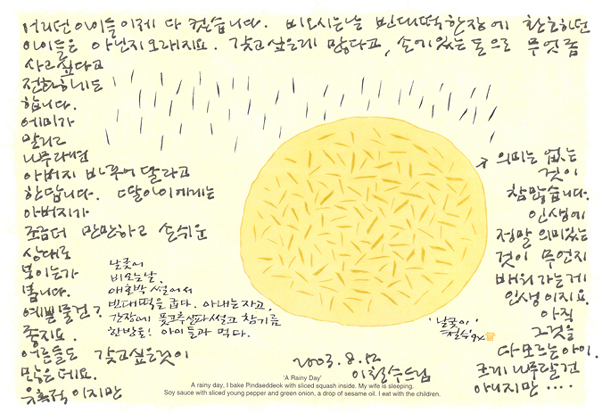 어리던 아이들 이제 다 컸습니다. 비오시는날 빈대떡 한장에 환호하던
아이들은 아닌지 오래지요. 갖고싶은게 많다고, 손에 있는 돈으로 무엇좀
사고싶다고
전화하기도
합니다.
에미가
말리고
나무라면
아버지 바꾸어 달라고
한답니다. 딸아이에게는
아버지가
조금더 만만하고 손쉬운
상대로
보이는가
봅니다.
예쁜 물건?
좋지요.
어른들도 갖고싶은것이
많은데요.
유혹적이지만
의미는 없는
것이
참많습니다.
인생에
정말 의미있는
것이 무언지
배워가는게
인생이지요.
아직
그것을
다 모르는아이.
크게 나무랄건
아니지만‥‥
날궂이
비오는날.
애호박 썰어서
빈대떡을 굽다. 아내는 자고,
간장에 풋고추 실파 썰고 참기름
한방울! 아이들과 먹다.
'날궂이'
철수 92
2003. 8. 12
이철수드림
'A Rainy Day'
A rainy day, I bake Pindaeddeok with sliced squash inside. My wife is sleeping.
Soy sauce with sliced young pepper and green onion, a drop of sesame oil. I eat with the children.